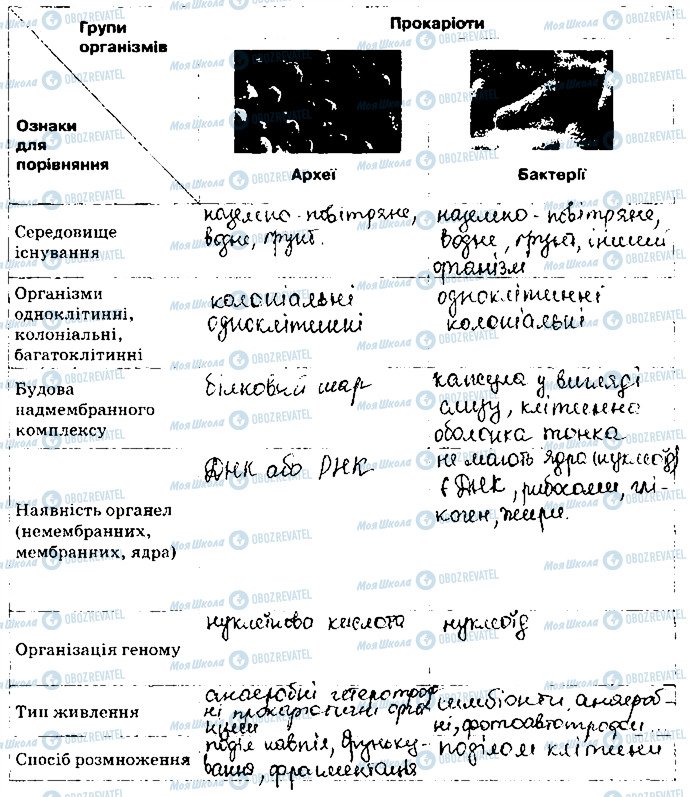 Групи
організмів
Прокаріоти
Ознаки
для
порівняння
Археї
Бактерії
Середовище
існування
наземно-повітряне,
водне, ґрунт.
наземно-повітряне,
водне, ґрунт, інший
організмі
Організми
одноклітинні,
колоніальні,
багатоклітинні
колоніальні
одноклітинні
одноклітинні
колоніальні
Будова
надмембранного
комплексу
білковий шар
капсула у вигляді
слизу, клітинна
оболонка тонка
Наявність органел
(немембранних,
мембранних, ядра)
ДНК або РНК
не мають ядра (нуклеоїд)
є ДНК, рибосоми, глі-
коген, жири.
Організація геному
нуклеїнова кислота
нуклеоїд
Тип живлення
анаеробні гетеротроф
ні прокаріотичні орга
нізми
симбіонти, анаероб-
ні, фотоавтотрофи
Спосіб розмноження
поділ навпіл, бруньку-
вання, фрагментація
поділом клітини